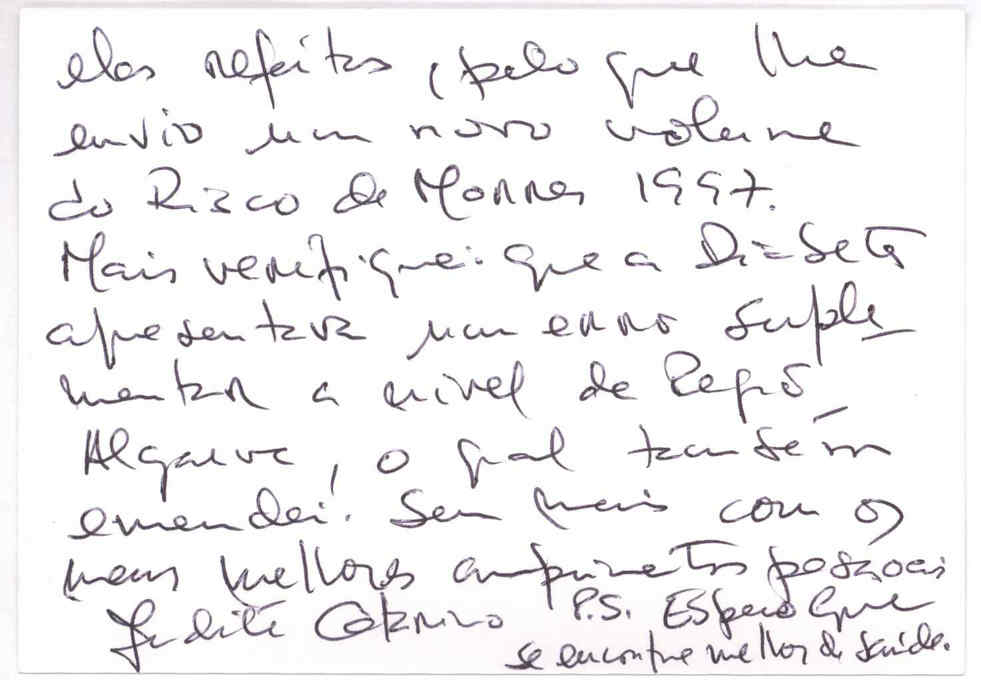 elas refeitas, pelo que lhe
envio um novo volume
do Risco de Morrer 1997.
Mais verifiquei que a Diabetes
apresentava um erro suple
mentar a nível de Região
Algarve, o qual também
emendei. Sem mais com os
meus melhores cumprimentos pessoais
Judite Catarino P.S. Espero que
se encontre melhor de saúde.